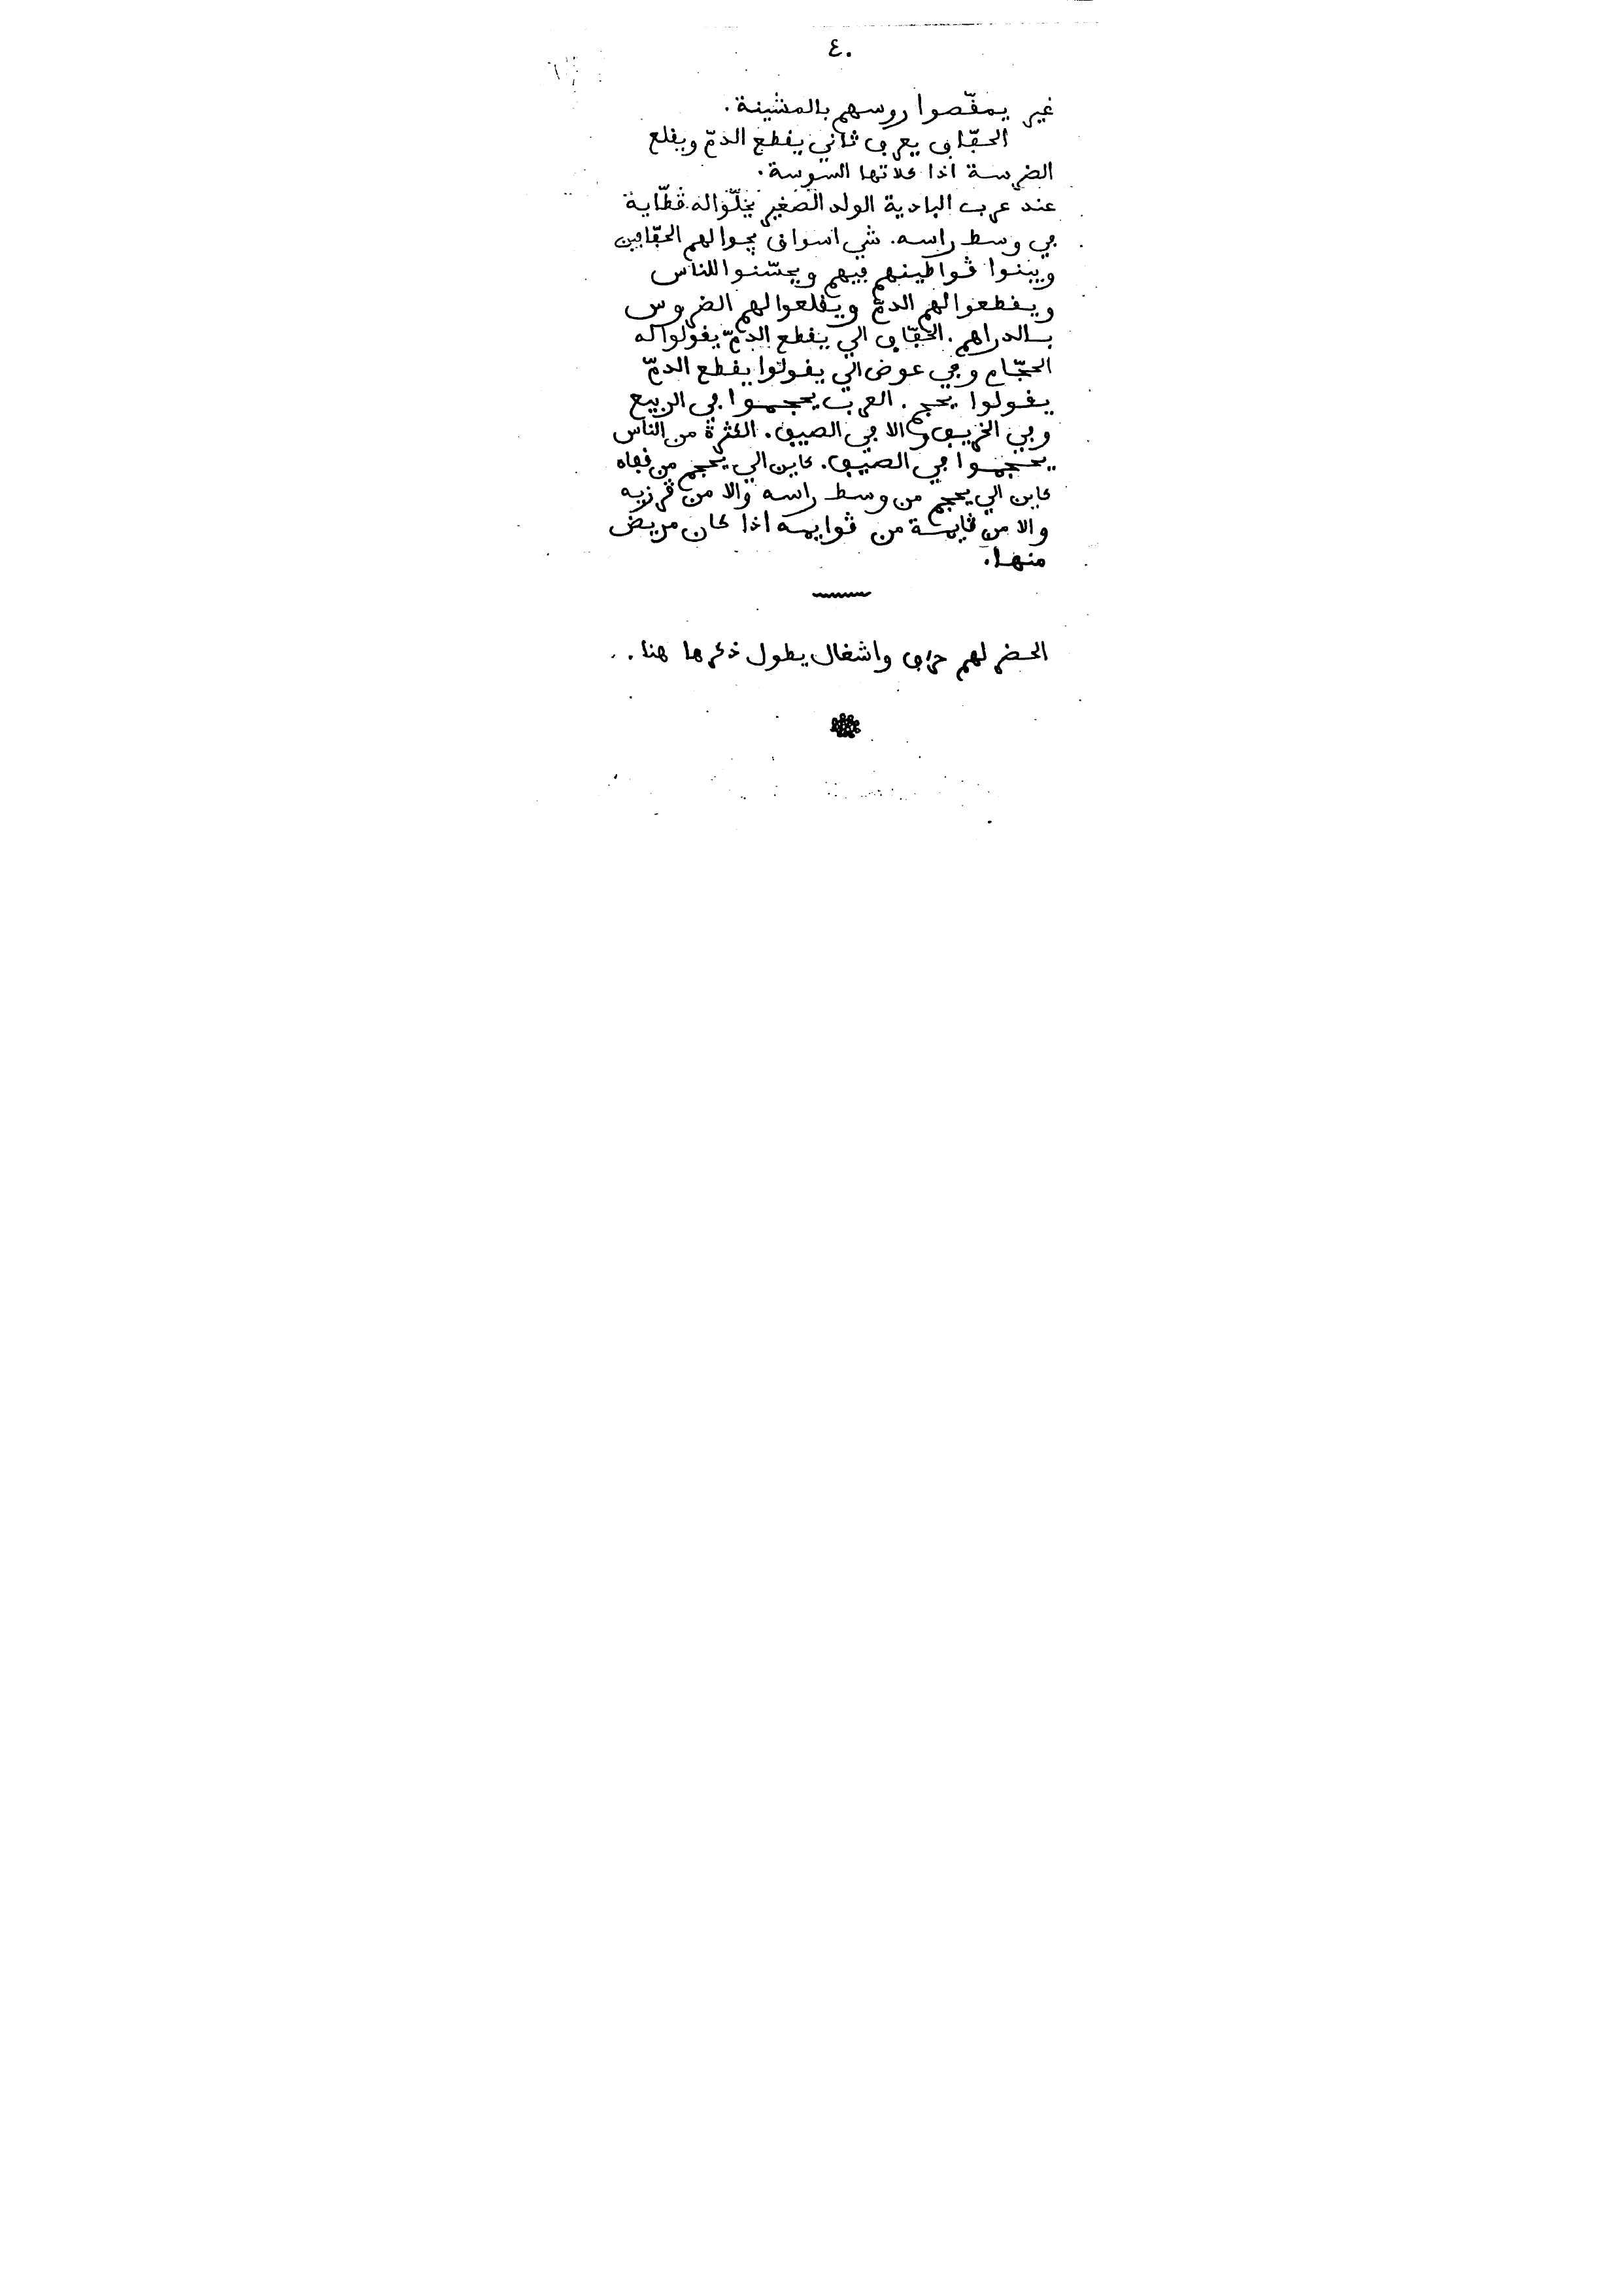 ٤٠
غير يمقّصوا روسهم بالمشينة.
الحفّاف يعرف ثاني يقطع الدمّ ويقلع
الضرسة اذا كلاتها السوسة.
عند عرب البادية الولد الصغير يخلّوا له ڨطّاية
في وسط راسه. شي اسواق يجوا لهم الحفّافين
ويبنوا ڨواطينهم فيهم ويحسّنوا للناس
ويقطعوا لهم الدمّ ويقلعوا لهم الضروس
بالدراهم. الحفّاف الي يقطع الدمّ يقولوا له
الحجّام وفي عوض الي يقولوا يقطع الدمّ
يقولوا يحجم. العرب يحجموا في الربيع
وفي الخريف والا في الصيف. الكثرة من الناس
يحجموا في الصيف. كاين الي يحجم من قفاه
كاين الي يحجم من وسط راسه والا من ڨرزيه
والا من ڨايمة من ڨوايمه اذا كان مريض
منها.
الحضر لهم حراف واشغال يطول ذكرها هنا.